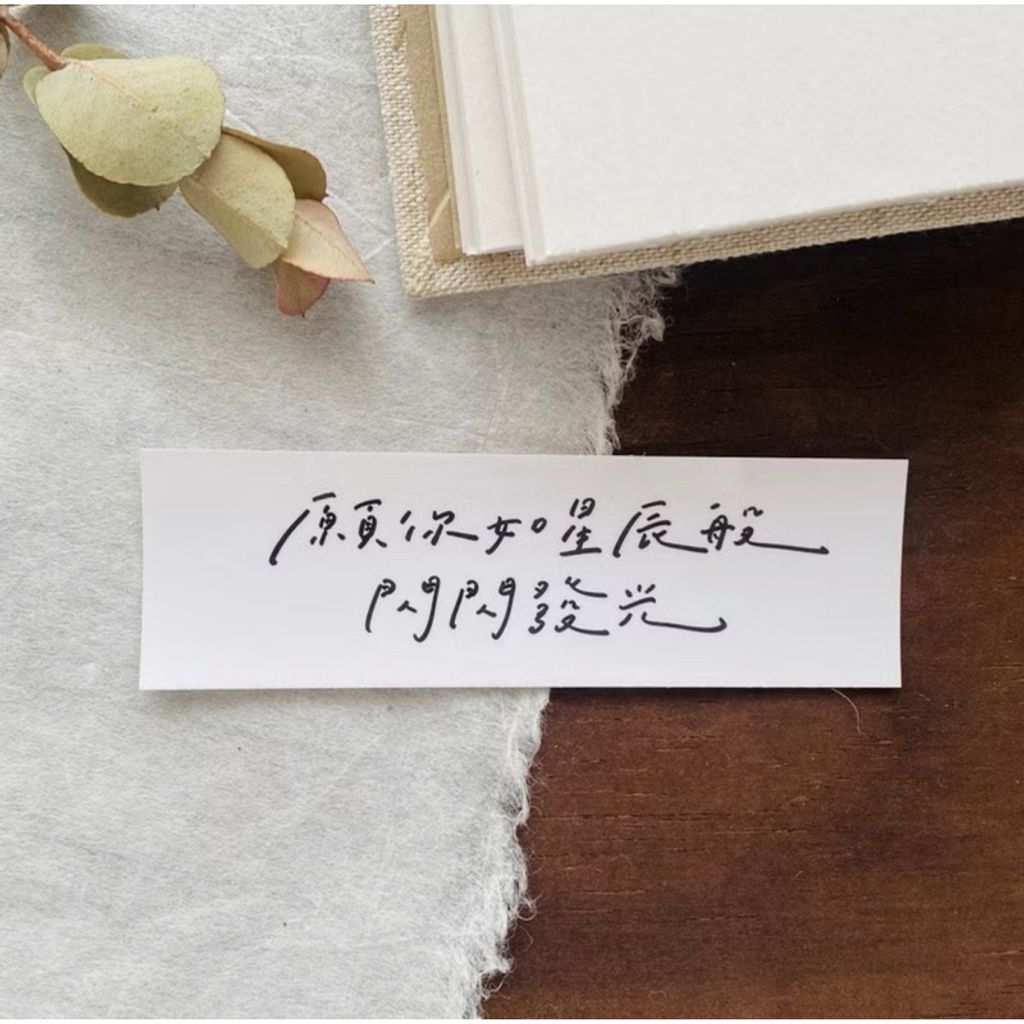 願你如星辰般
閃閃發光